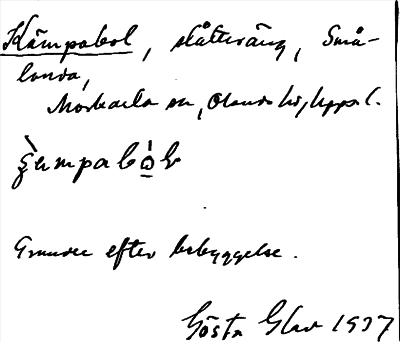 Kämpabol, slåtteräng, Små-
landa,
Morkarla sn, Olands hd, Uppl.
Grunder efter bebyggelse.
Gösta Glav 1937